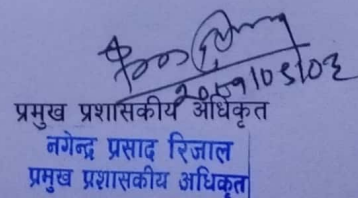 प्रमुख प्रशासकीय अधिकृत
नगेन्द्र प्रसाद रिजाल
प्रमुख प्रशासकीय अधिकृत